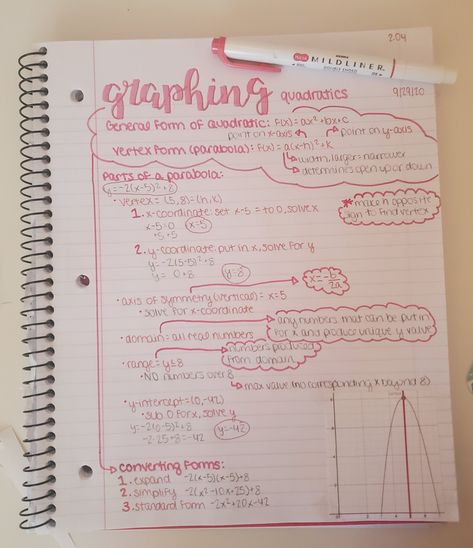 2.04
MILDLINER
graphing quadratics
9/29/20
General form of Quadratic: F(x) = ax²+bx+c
point on x-axis
point on y-axis
Vertex form (parabola): F(x) = a(x-h)²+k
width, larger=narrower
determines open up or down
Parts of a parabola:
y=-2(x-5)²+8
• vertex = (5,8)=(h,k)
1. x-coordinate: set x-5 = to 0, solve x
x-5=0 x=5
+5 +5
* make h opposite sign to find vertex
2. y-coordinate: put in x, solve for y
y=-2(5-5)²+8
y= 0+8 y=8
x=-b/2a
• axis of symmetry (vertical) = x=5
• solve for x-coordinate
• domain: all real numbers
any numbers that can be put in for x and produce unique y value
• range= y≤8
numbers produced from domain
• NO numbers over 8
max value (no corresponding x beyond 8)
• y-intercept=(0,-42)
• sub 0 for x, solve y
y=-2(0-5)²+8
-2·25+8=-42 y=-42
converting forms:
1. expand -2(x-5)(x-5)+8
2. simplify -2(x²-10x+25)+8
3. standard form -2x²+20x-42